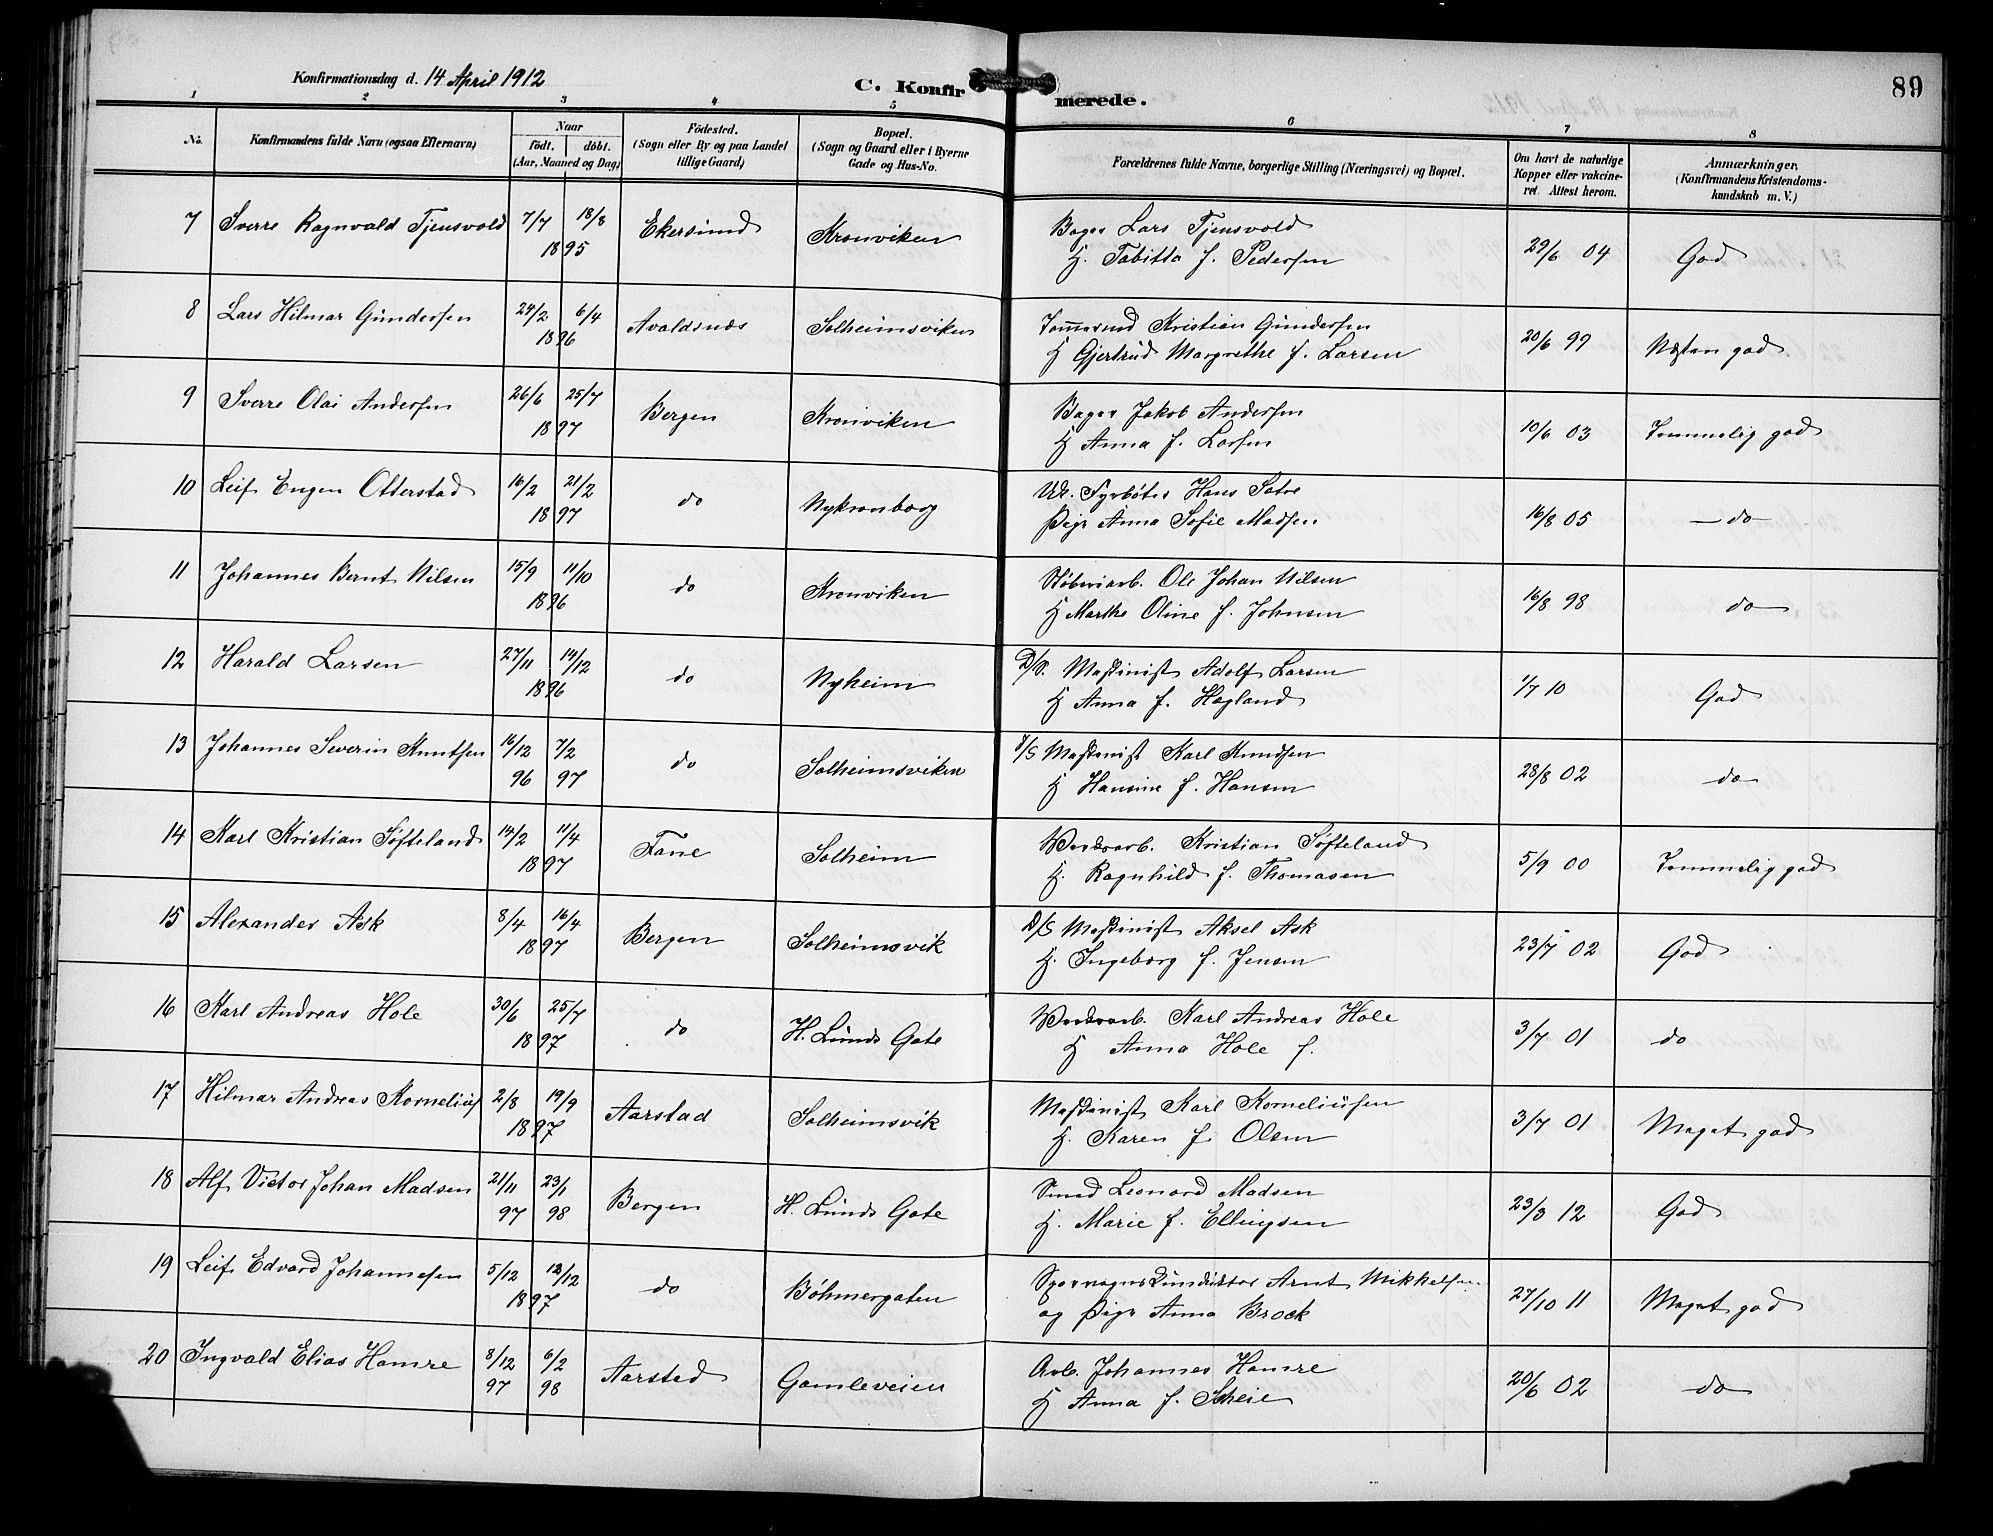 Konfirmationsdag d. 14 April 1912
C. Konfirmerede.
89
1 2 3 4 5 6 7 8
No.
Konfirmandens fulde Navn (ogsaa Efternavn)
Naar
födt. döbt.
(Aar, Maaned og Dag)
Födested.
(Sogn eller By og paa Landet tillige Gaard)
Bopæl.
(Sogn og Gaard eller i Byerne Gade og Hus-No.
Forældrenes fulde Navne, borgerlige Stilling (Næringsvei) og Bopæl.
Om havt de naturlige Kopper eller vakcineret. Attest herom.
Anmærkninger.
(Konfirmandens Kristendomskundskab m. V.)
7 Sverre Ragnvald Tjensvold 7/7 18/8 Ekersund Kronviken Bager Lars Tjensvold 29/6 04 God
1895 H. Tabitta f. Pedersen
8 Lars Hilmar Gundersen 24/2 6/4 Avaldsnæs Solheimsviken Tømmermd Kristian Gundersen 20/6 99 Næsten god
1896 H Gjertrud Margrethe f. Larsen
9 Sverre Olai Andersen 26/6 25/7 Bergen Kronviken Bager Jakob Andersen 10/6 03 Temmelig god
1897 H Anna f. Larsen
10 Leif Engen Otterstad 16/2 21/2 do Nykronborg Uk. Fyrbøter Hans Satre 16/8 05 – do –
1897 Pige Anna Sofie Madsen
11 Johannes Bernt Nilsen 15/9 11/10 do Kronviken Støberiarb. Ole Johan Nilsen 16/8 98 do
1896 H Marthe Oline f. Johnsen
12 Harald Larsen 27/11 14/12 do Nyheim D/S. Maskinist Adolf Larsen 1/7 10 God
1896 H Anna f. Hagland
13 Johannes Severin Knutsen 16/12 7/2 do Solheimsviken D/S Maskinist Karl Knudsen 28/8 02 do
96 97 H Hansine f. Hansen
14 Karl Kristian Søfteland 14/2 11/4 Fane Solheim Verksarb. Kristian Søfteland 5/9 00 Temmelig god
1897 H. Ragnhild f. Thomasen
15 Alexander Ask 8/4 16/4 Bergen Solheimsvik D/S Maskinist Aksel Ask 23/7 02 God
1897 H. Ingeborg f. Jensen
16 Karl Andreas Hole 30/6 25/7 do H. Lunds Gate Verksarb. Karl Andreas Hole 3/7 01 do
1897 H Anna Hole f.
17 Hilmar Andreas Kornelius 2/8 19/9 Aarstad Solheimsvik Maskinist Karl Korneliusen 3/7 01 Meget god
1897 H. Karen f. Olsen
18 Alf Victor Johan Madsen 21/11 23/1 Bergen H. Lunds Gate Smed Leonard Madsen 23/3 12 God
97 98 H. Marie f. Ellingsen
19 Leif Edvard Johannesen 5/12 12/12 do Böhmergaten Sporvognskunduktor Arnt Mikkelsen 27/10 11 Meget god
1897 og Pige Anna Brock
20 Ingvald Elias Hamre 8/12 6/2 Aarstad Gamleveien Arb. Johannes Hamre 20/6 02 do
97 98 H Anna f. Skeie